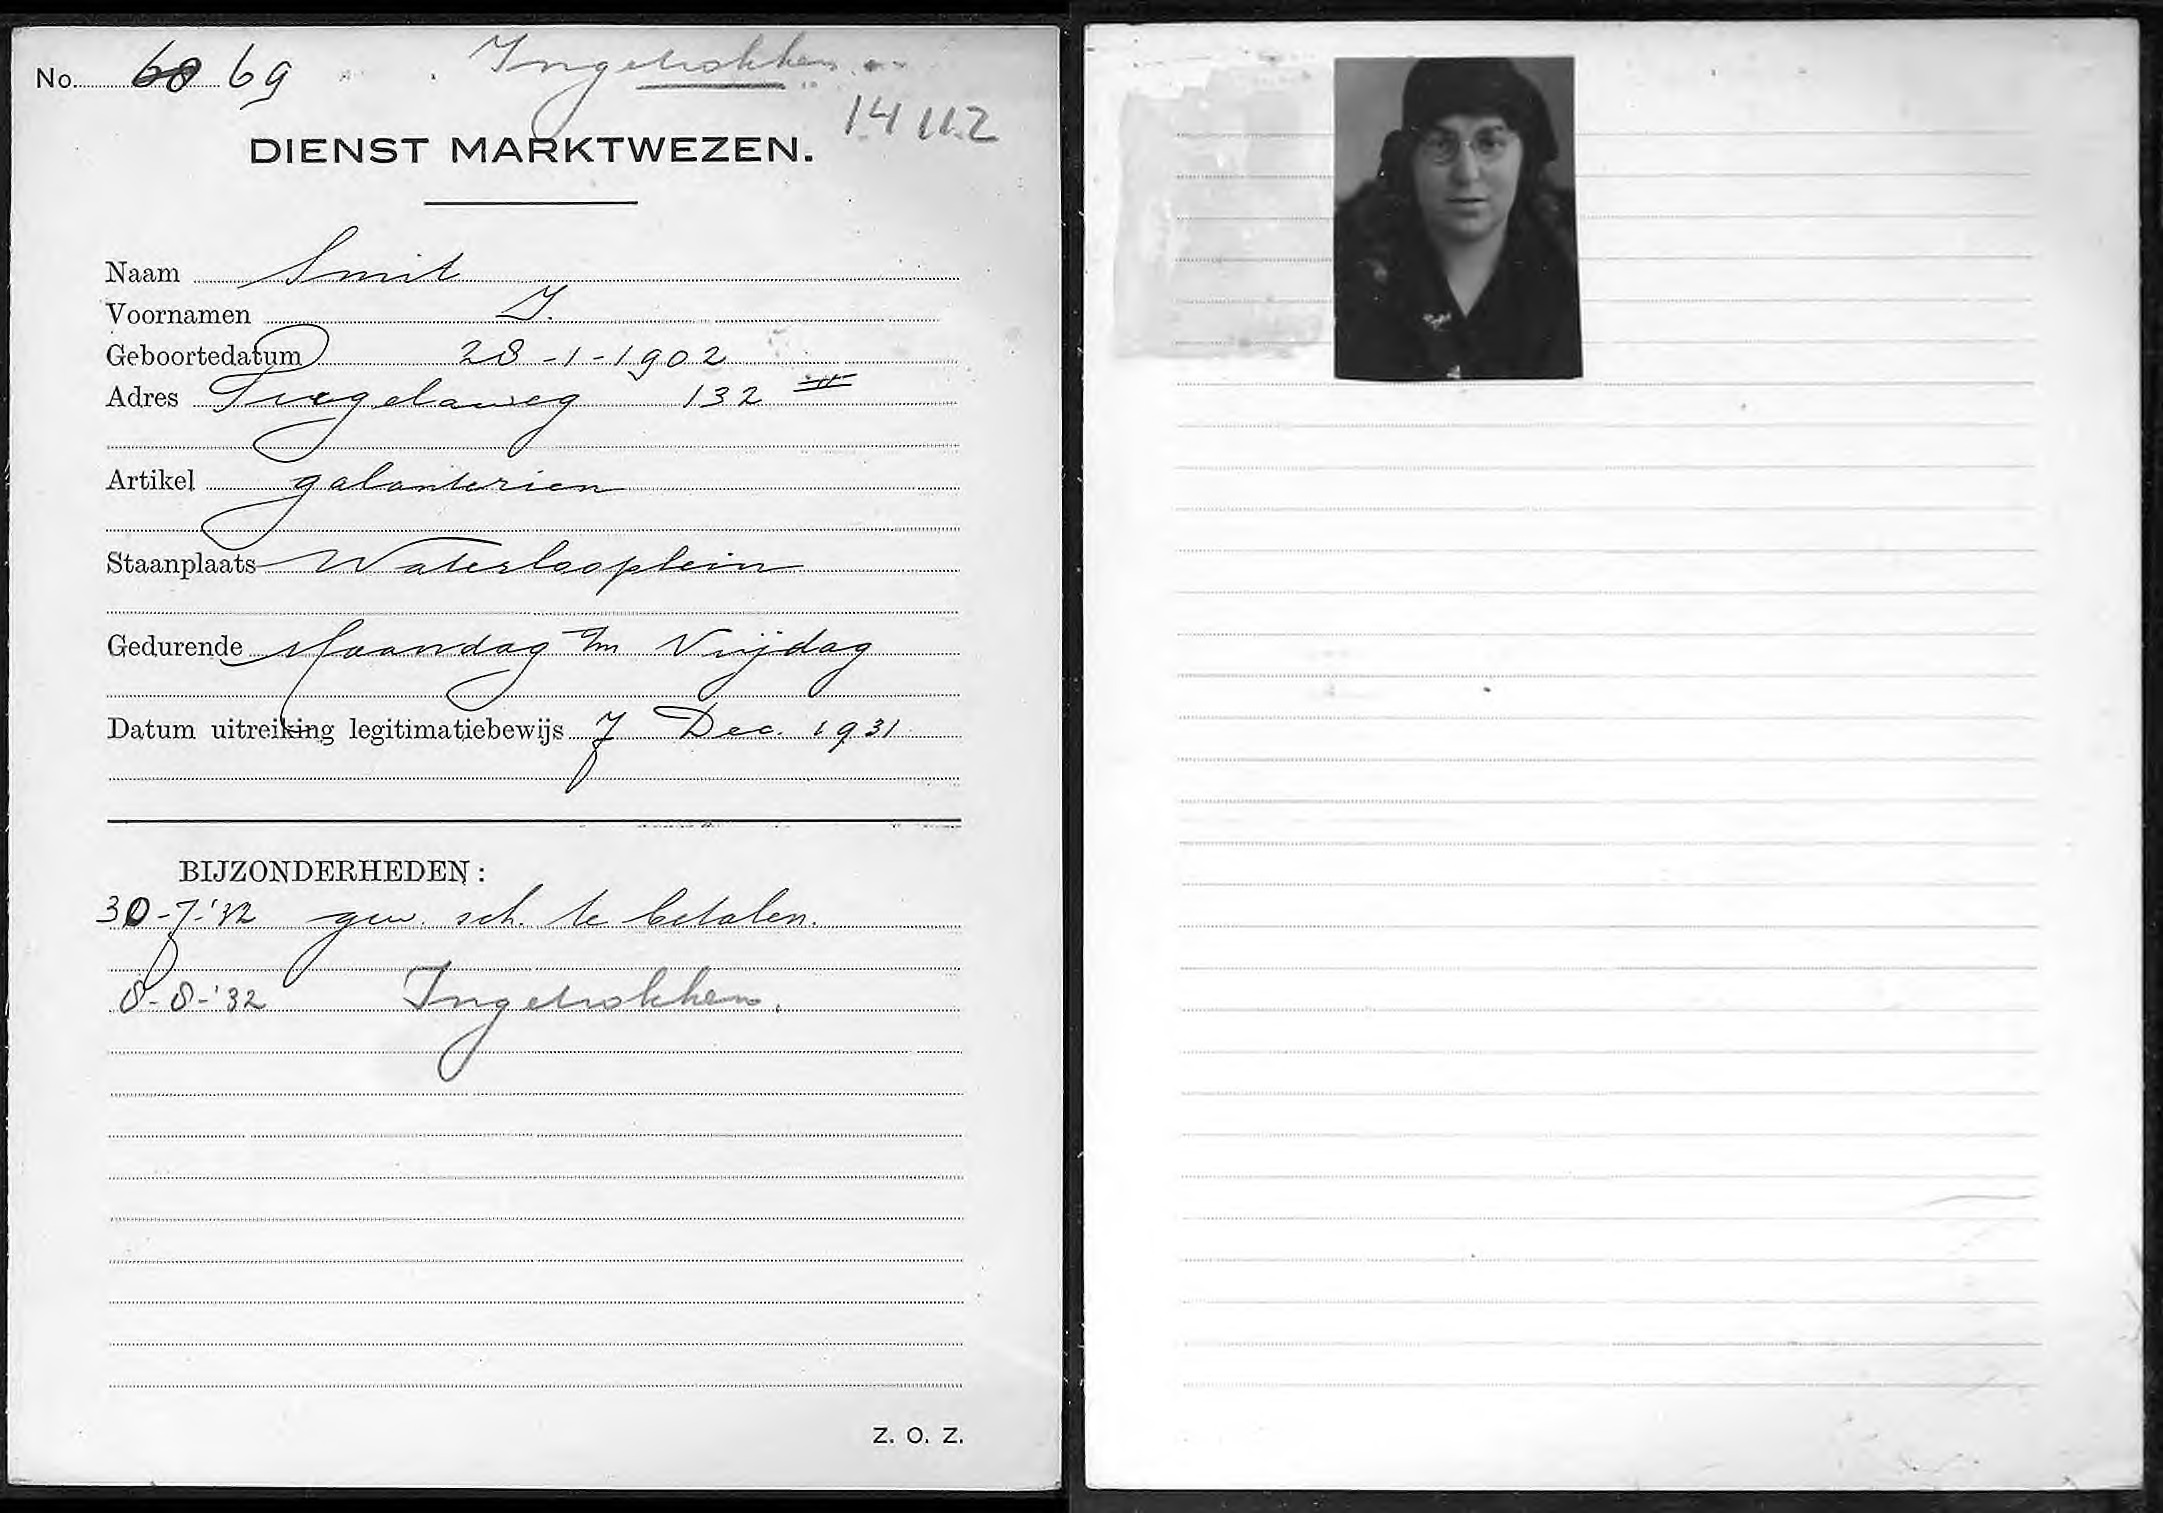 No. 68 69 Ingetrokken.
14 112
DIENST MARKTWEZEN.
Naam Smit
Voornamen J.
Geboortedatum 28-1-1902
Adres Tugelaweg 132 II
Artikel galanterien
Staanplaats Waterlooplein
Gedurende Maandag t/m Vrijdag
Datum uitreiking legitimatiebewijs 7 Dec. 1931
BIJZONDERHEDEN:
30-7-'32 gew. sch. te betalen.
8-8-'32 Ingetrokken.
Z. O. Z.